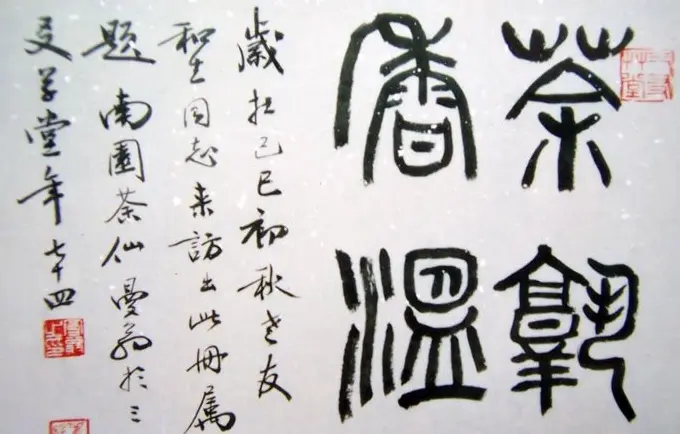 茶孰
香溫
歲在己巳初秋老友
和生同志来訪出此冊属
題南園茶仙曼翁於三
友草堂年七十四